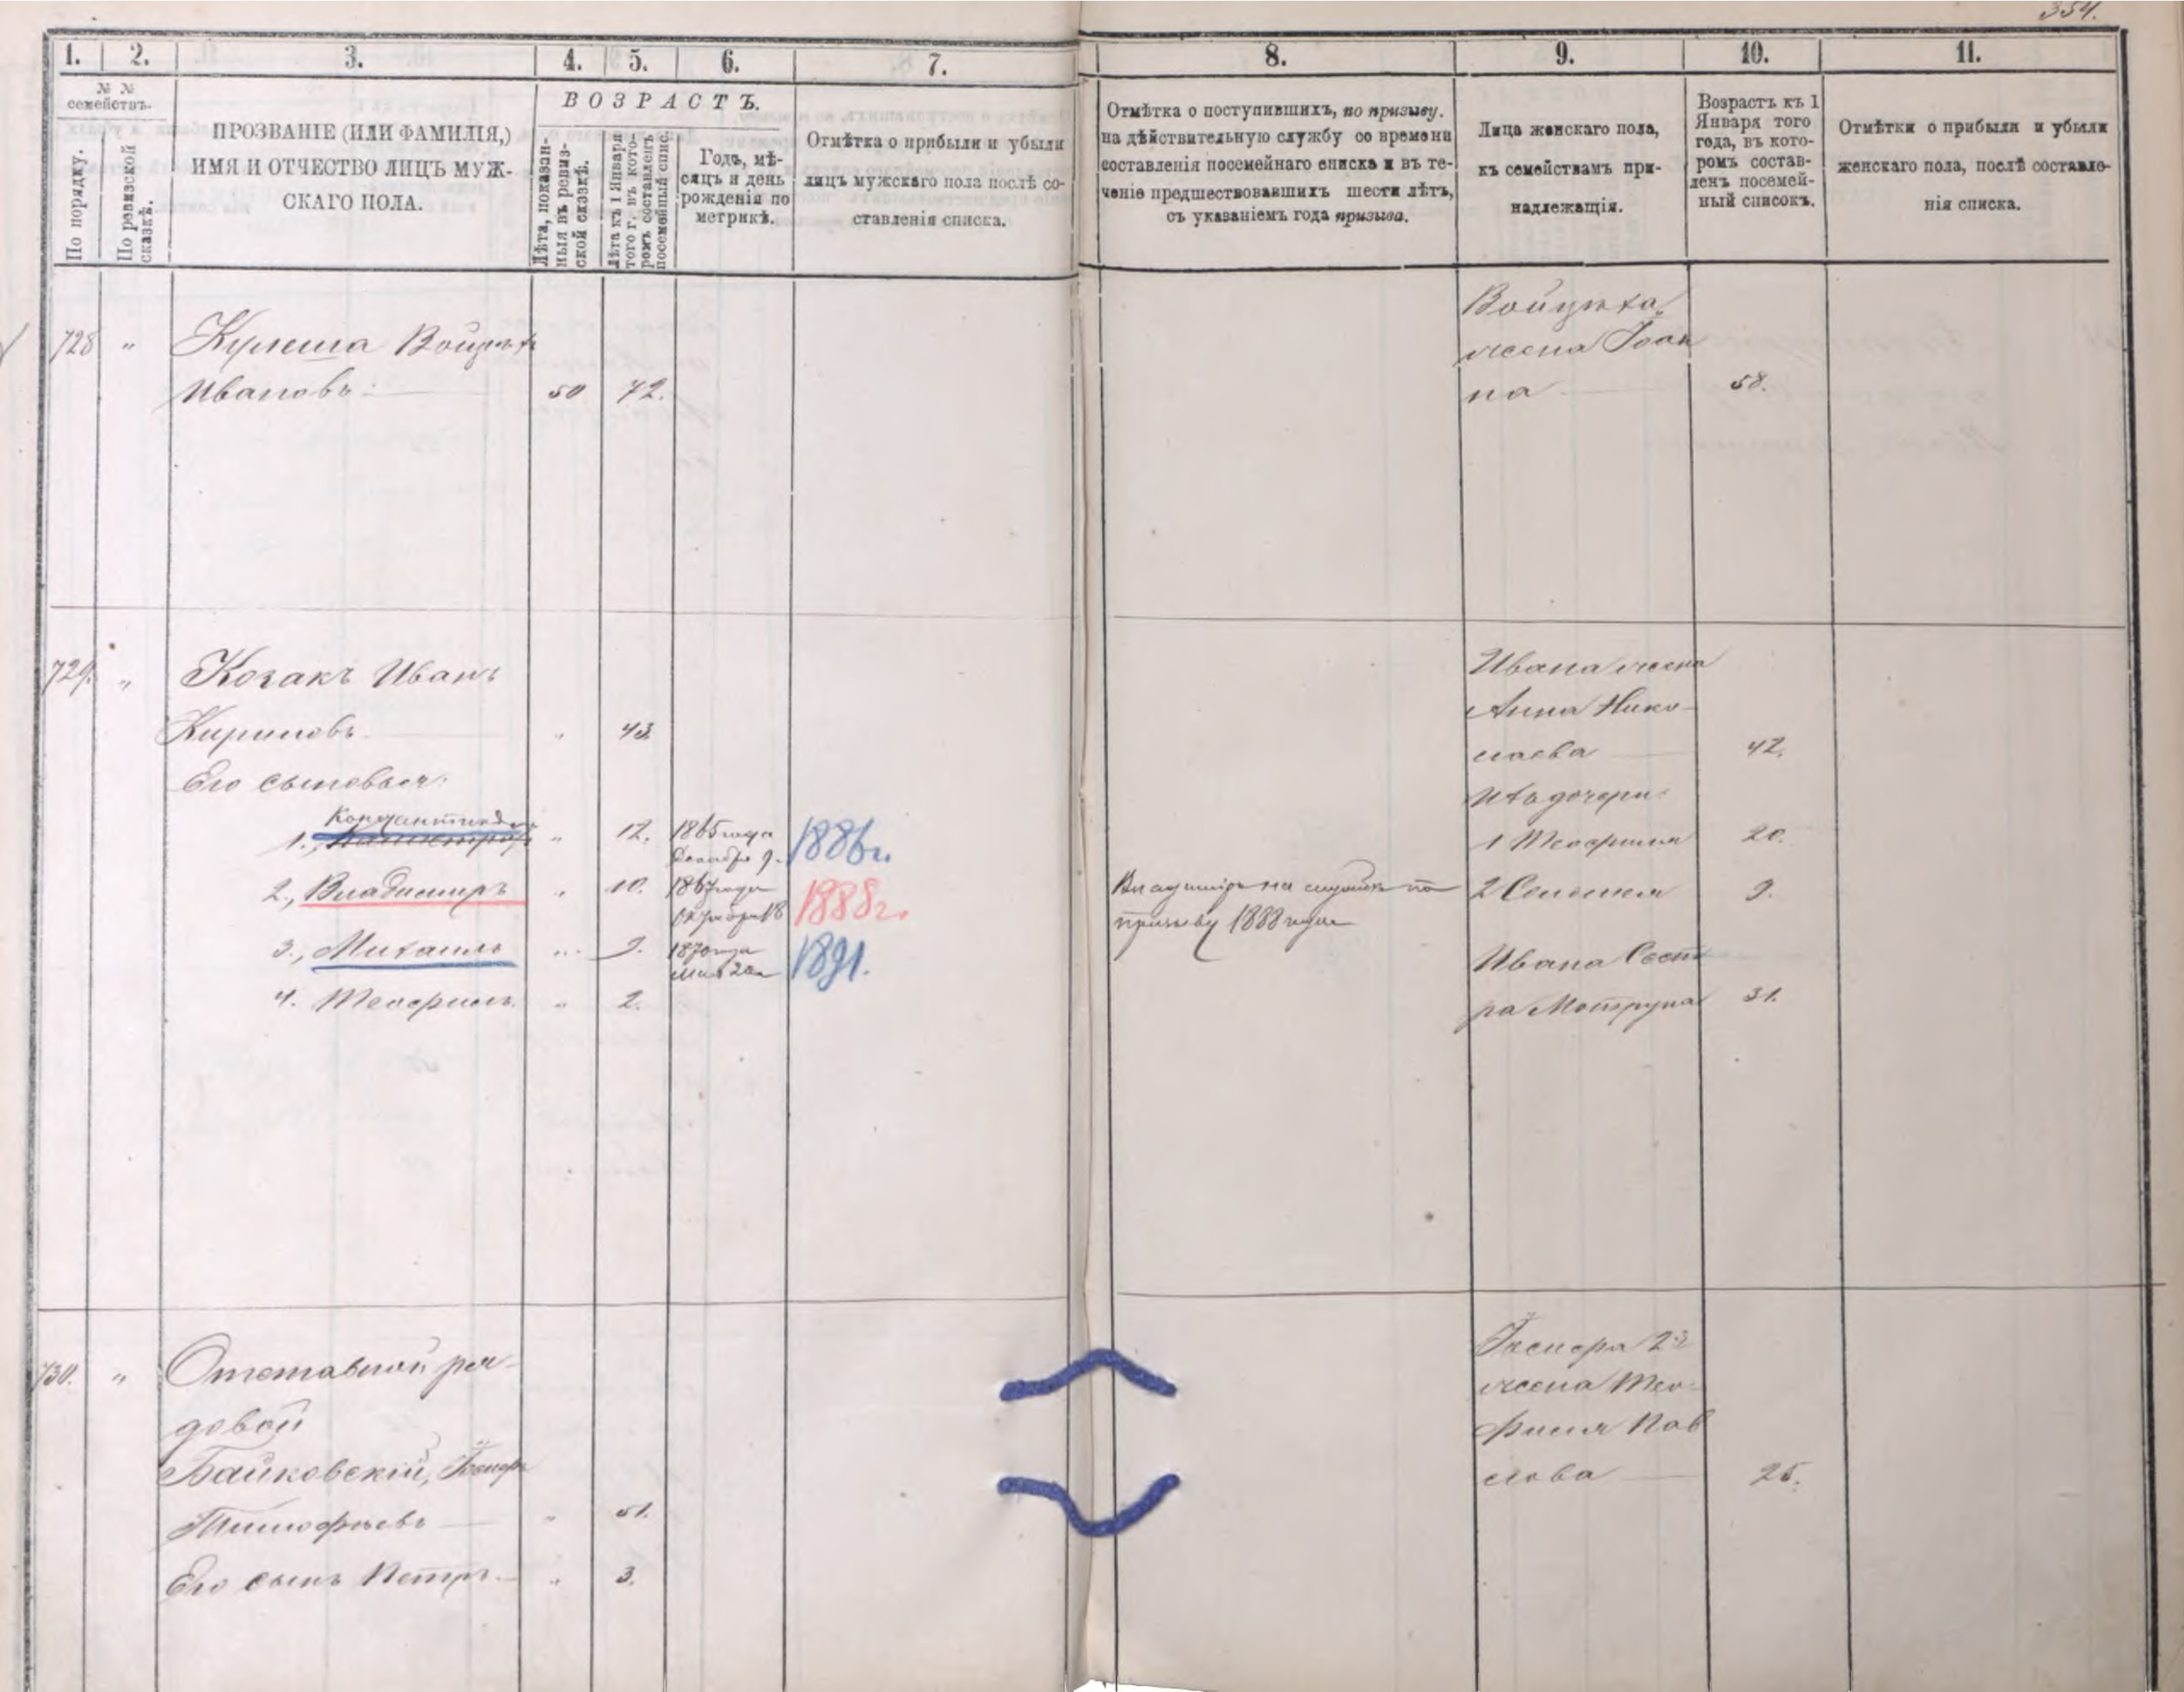 354.
1. 2. 3. 4. 5. 6. 7. 8. 9. 10. 11.
№ № семействъ.
По порядку.
По ревизской сказкѣ.
ПРОЗВАНІЕ (ИЛИ ФАМИЛІЯ,)
ИМЯ И ОТЧЕСТВО ЛИЦЪ МУЖ-
СКАГО ПОЛА.
ВОЗРАСТЪ.
Лѣта, показан-
ныя въ ревиз-
ской сказкѣ.
Лѣта къ 1 Января
того г. въ кото-
ромъ составленъ
посемейный спис.
Годъ, мѣ-
сяцъ и день
рожденія по
метрикѣ.
Отмѣтка о прибыли и убыли
лицъ мужскаго пола послѣ со-
ставленія списка.
Отмѣтка о поступившихъ, по призыву.
на дѣйствительную службу со времени
составленія посемейнаго списка и въ те-
ченіе предшествовавшихъ шести лѣтъ,
съ указаніемъ года призыва.
Лица женскаго пола,
къ семействамъ при-
надлежащія.
Возрастъ къ 1
Января того
года, въ кото-
ромъ состав-
ленъ посемей-
ный списокъ.
Отмѣтки о прибыли и убыли
женскаго пола, послѣ составле-
нія списка.
728 " Кулеша Войцѣхъ
Ивановъ 50 72.
Войцѣха
жена Іоан
на 58.
729. " Козакъ Иванъ
Кириловъ " 43.
Его сыновья:
Константинъ
1., " 12. 1865 года
Декабря 9. 1886 г.
2., Владимиръ " 10. 1867 года
Октября 18 1888 г.
3., Михаилъ " 9. 1870 года
Мая 20 1891.
4. Теофиль " 2.
Владиміръ на службѣ по
призыву 1888 года
Ивана жена
Анна Нико-
лаева 42.
Ихъ дочери:
1 Теофиля 20.
2 9.
Ивана Сест
ра Мотруна 31.
730. " Отставной ря-
довой
Байковскій,
Тимофѣевъ " 51.
Его сынъ Петръ. " 3.
2й
жена Тео-
филя Пав
лова 25.